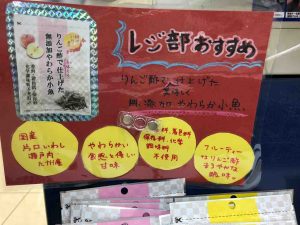 りんご酢で仕上げた
無添加やわらか小魚
レジ部おすすめ
りんご酢で仕上げた
美味しく
無添加やわらか小魚。
国産
片口いわし
瀬戸内
九州産
やわらかい
食感と優しい
甘味
料・着色料
保存料・化学
調味料
不使用
フルーティー
なりんご酢
まろやかな
酸味。